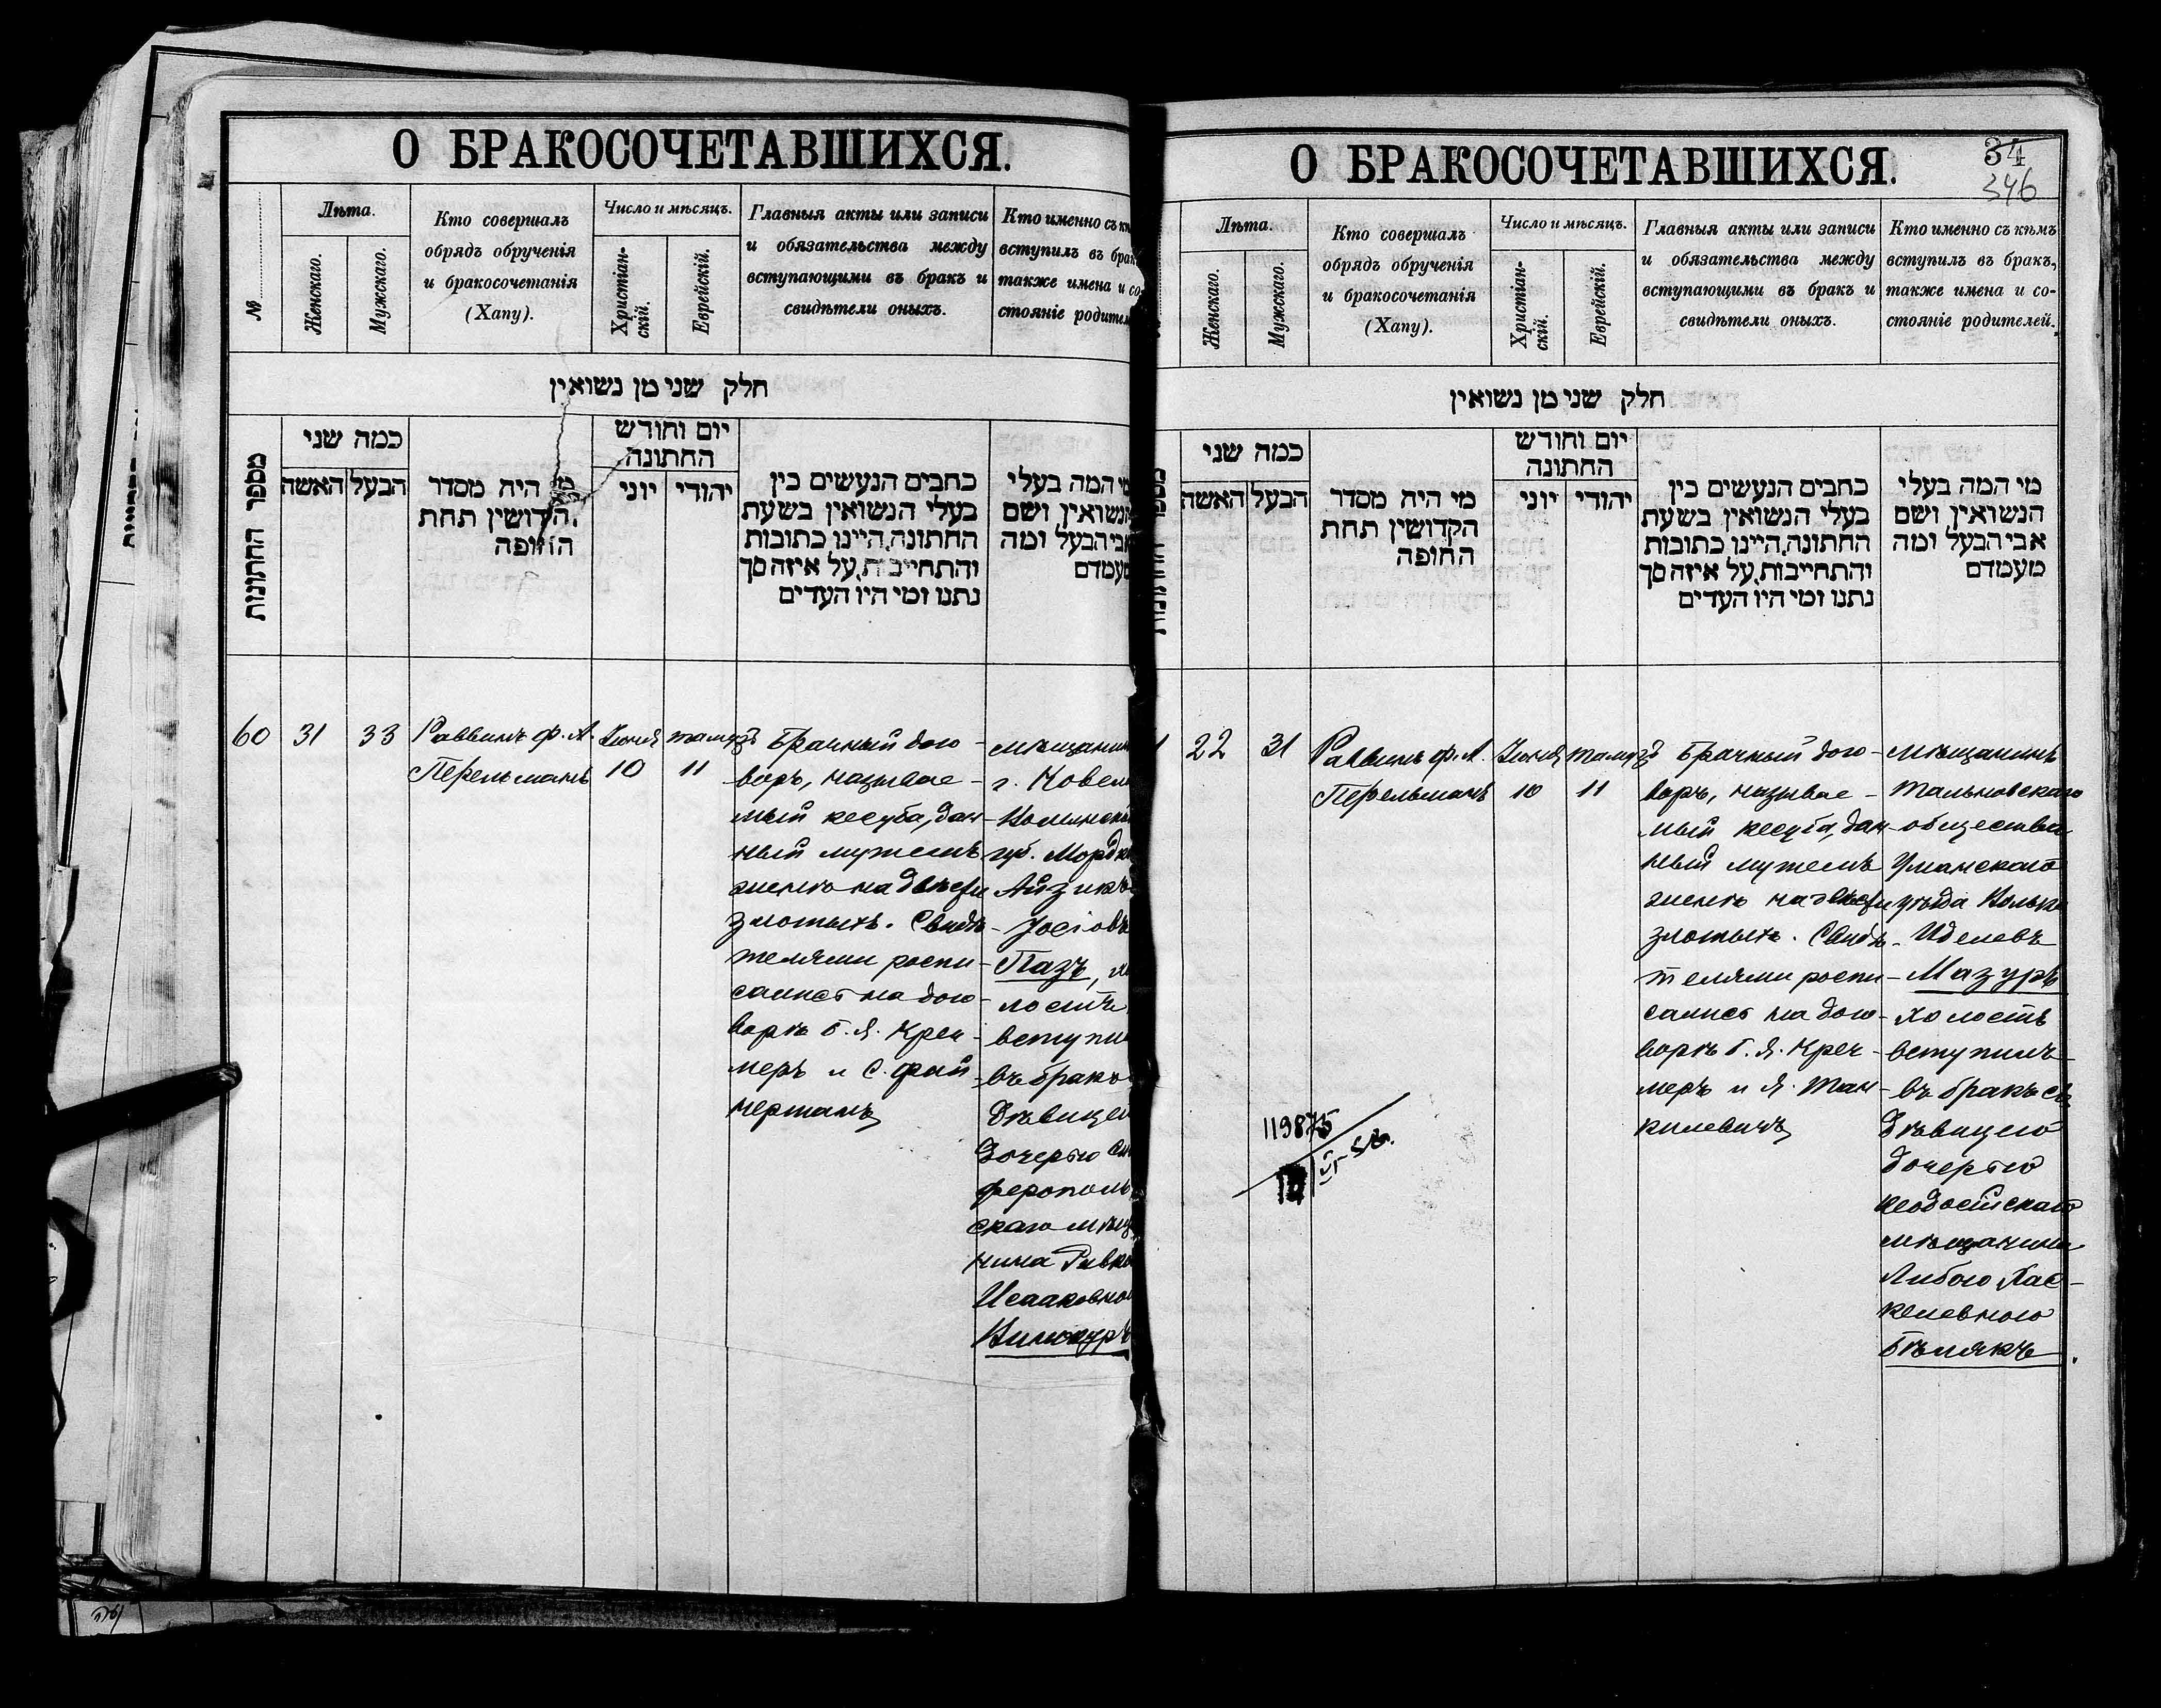 О БРАКОСОЧЕТАВШИХСЯ.
№
Лѣта.
Женскаго.
Мужскаго.
Кто совершалъ
обрядъ обрученія
и бракосочетанія
(Хапу).
Число и мѣсяцъ.
Христіан-
скій.
Еврейскій.
Главныя акты или записи
и обязательства между
вступающими въ бракъ и
свидѣтели оныхъ.
Кто именно съ
вступилъ въ
также имена и со-
стояніе
חלק שני מן נשואין
מספר החתונות
כמה שני
האשה
הבעל
מי היה מסדר
הקדושין תחת
החופה
יום וחודש
החתונה
יוני
יהודי
כתבים הנעשים בין
בעלי הנשואין בשעת
החתונה, היינו כתובות
והתחייבות, על איזה סך
נתנו ומי היו העדים
מי המה בעלי
הנשואין ושם
אבי הבעל ומה
מעמדם
60
31
33
Раввинъ Ф. А.
Перельманъ
Іюня
10
Тамузъ
11
Брачный дого-
воръ, называе-
мый кесуба, дан-
ный мужемъ
женѣ на двѣсти
злотыхъ. Свидѣ-
телями роспи-
сались на дого-
ворѣ Б. Я.
меръ и С. Фай-
нерманъ
г.
губ.
Айзикъ
Іосіовъ
Пазъ,
лостъ
въ бракъ
Дочерью
скаго
нина
Винокуръ
О БРАКОСОЧЕТАВШИХСЯ.
34
346
Лѣта.
Женскаго.
Мужскаго.
Кто совершалъ
обрядъ обрученія
и бракосочетанія
(Хапу).
Число и мѣсяцъ.
Христіан-
скій.
Еврейскій.
Главныя акты или записи
и обязательства между
вступающими въ бракъ и
свидѣтели оныхъ.
Кто именно съ кѣмъ
вступилъ въ бракъ,
также имена и со-
стояніе родителей.
חלק שני מן נשואין
כמה שני
האשה
הבעל
מי היה מסדר
הקדושין תחת
החופה
יום וחודש
החתונה
יוני
יהודי
כתבים הנעשים בין
בעלי הנשואין בשעת
החתונה, היינו כתובות
והתחייבות, על איזה סך
נתנו ומי היו העדים
מי המה בעלי
הנשואין ושם
אבי הבעל ומה
מעמדם
22
31
Раввинъ Ф. А.
Перельманъ
Іюня
10
Тамузъ
11
Брачный дого-
воръ, называе-
мый кесуба, дан-
ный мужемъ
женѣ на двѣсти
злотыхъ. Свидѣ-
телями роспи-
сались на дого-
ворѣ Б. Я.
меръ и Я. Тан-
килевичъ
Мѣщанинъ
Тальновскаго
общества
Уманскаго
уѣзда Волько
Иделевъ
Мазуръ
холостъ
вступилъ
въ бракъ съ
Дѣвицею
дочерью
Ѳеодосійскаго
мѣщанина
Либою Хас-
келевною
Бѣлякъ.